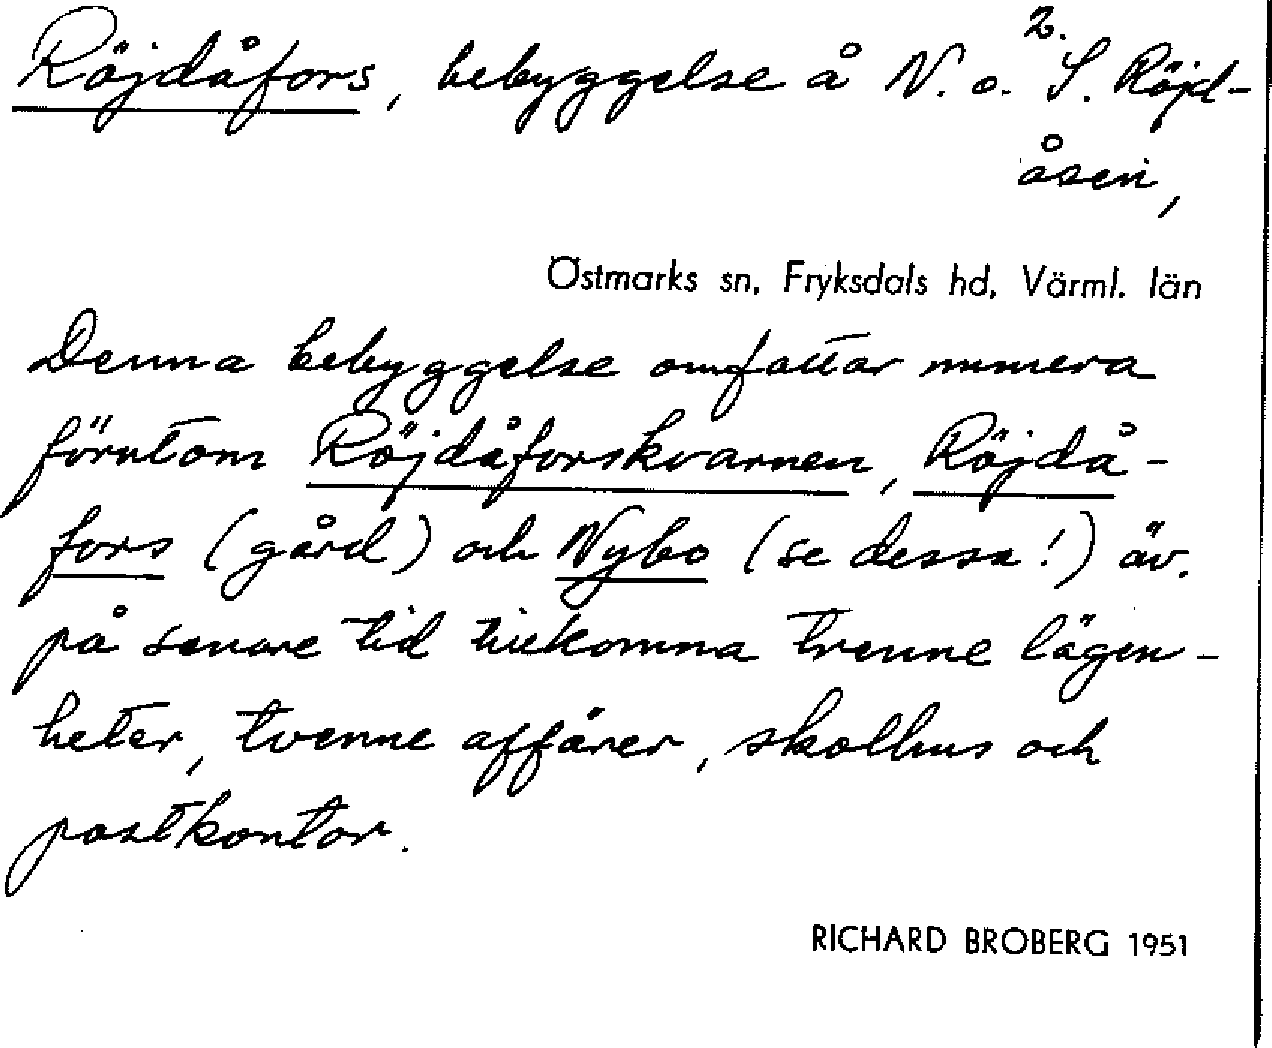 2.
Röjdåfors, bebyggelse å N. o. S. Röjd-
åsen,
Östmarks sn, Fryksdals hd, Värml. län
Denna bebyggelse omfattar numera
förutom Röjdåforskvarnen, Röjdå-
fors (gård) och Nybo (se dessa!) äv.
på senare tid tillkomna trenne lägen-
heter, tvenne affärer, skolhus och
postkontor.
RICHARD BROBERG 1951